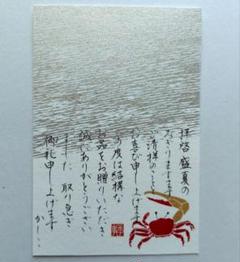 拝啓 盛夏の
みぎりますます
ご清祥のことと
お喜び申し上げます
この度は結構な
お品をお贈りいただき
誠にありがとうござい
ました 取り急ぎ
御礼申し上げます
かしこ